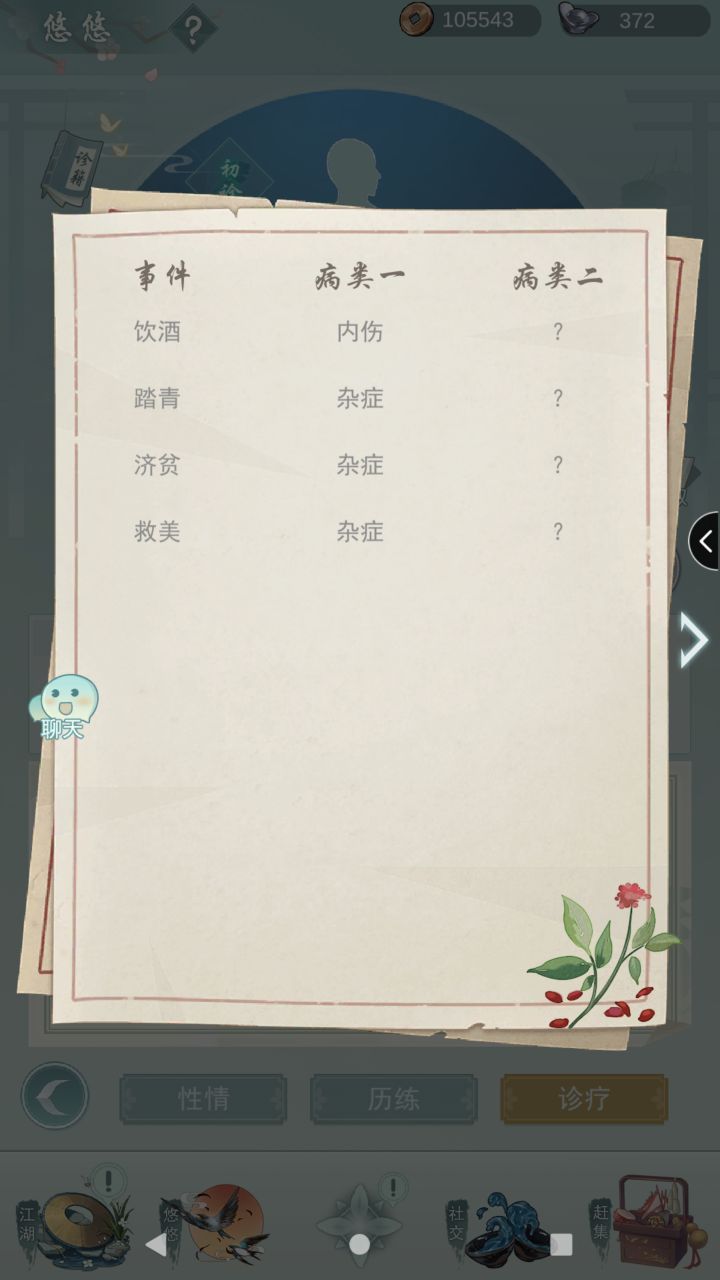 悠悠
?
105543
372
诊籍
初诊
事件 病类一 病类二
饮酒 内伤 ?
踏青 杂症 ?
济贫 杂症 ?
救美 杂症 ?
聊天
性情 历练 诊疗
江湖 悠悠 社交 赶集